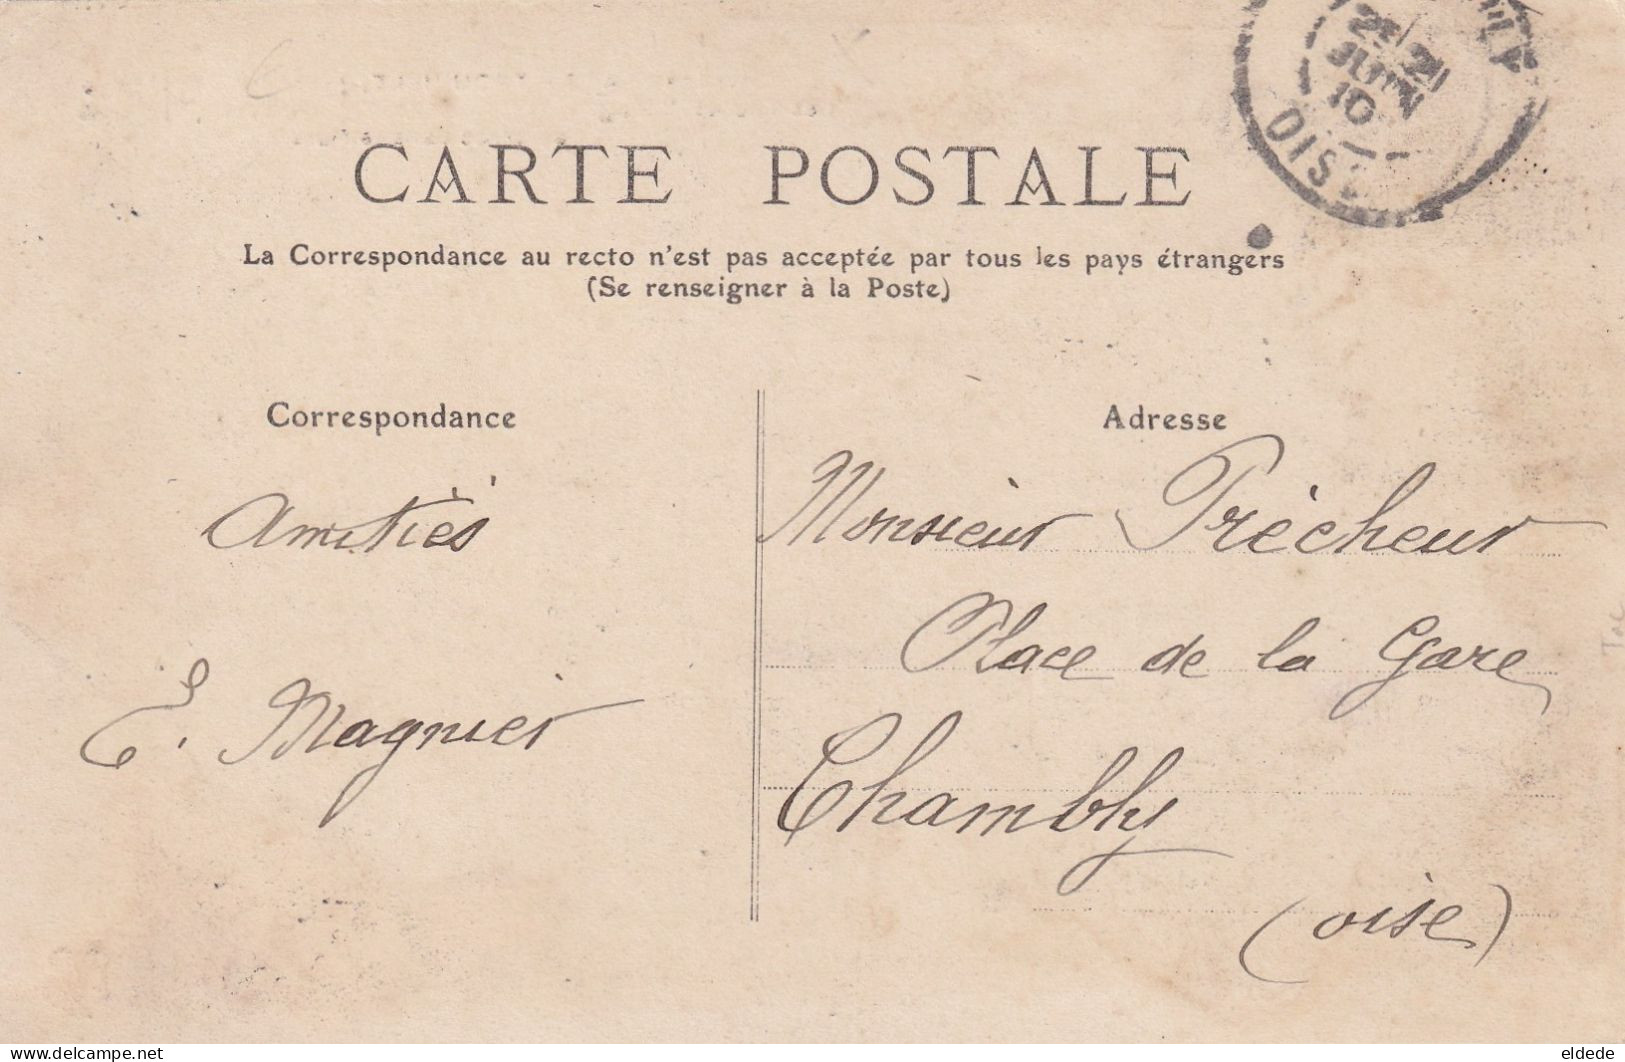 21
JUIN
10
CARTE POSTALE
La Correspondance au recto n'est pas acceptée par tous les pays étrangers
(Se renseigner à la Poste)
Correspondance
Amitiés
E. Magnier
Adresse
Monsieur Précheur
Place de la Gare
Chambly
(oise)
eldede